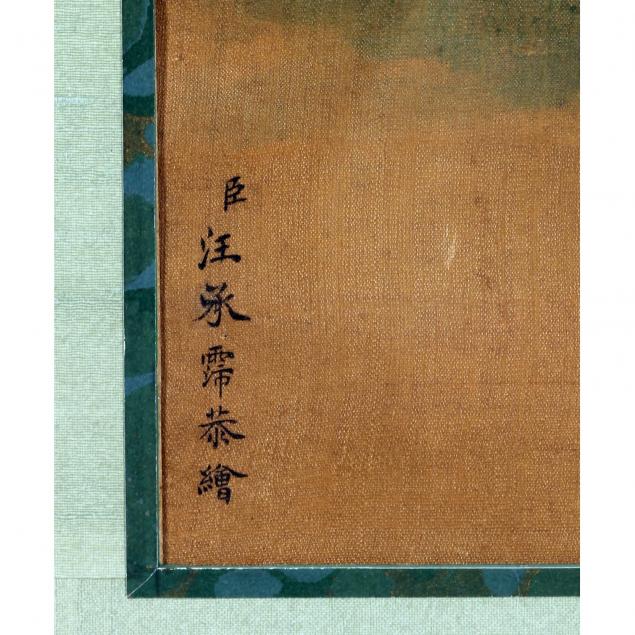 臣汪承霈恭繪